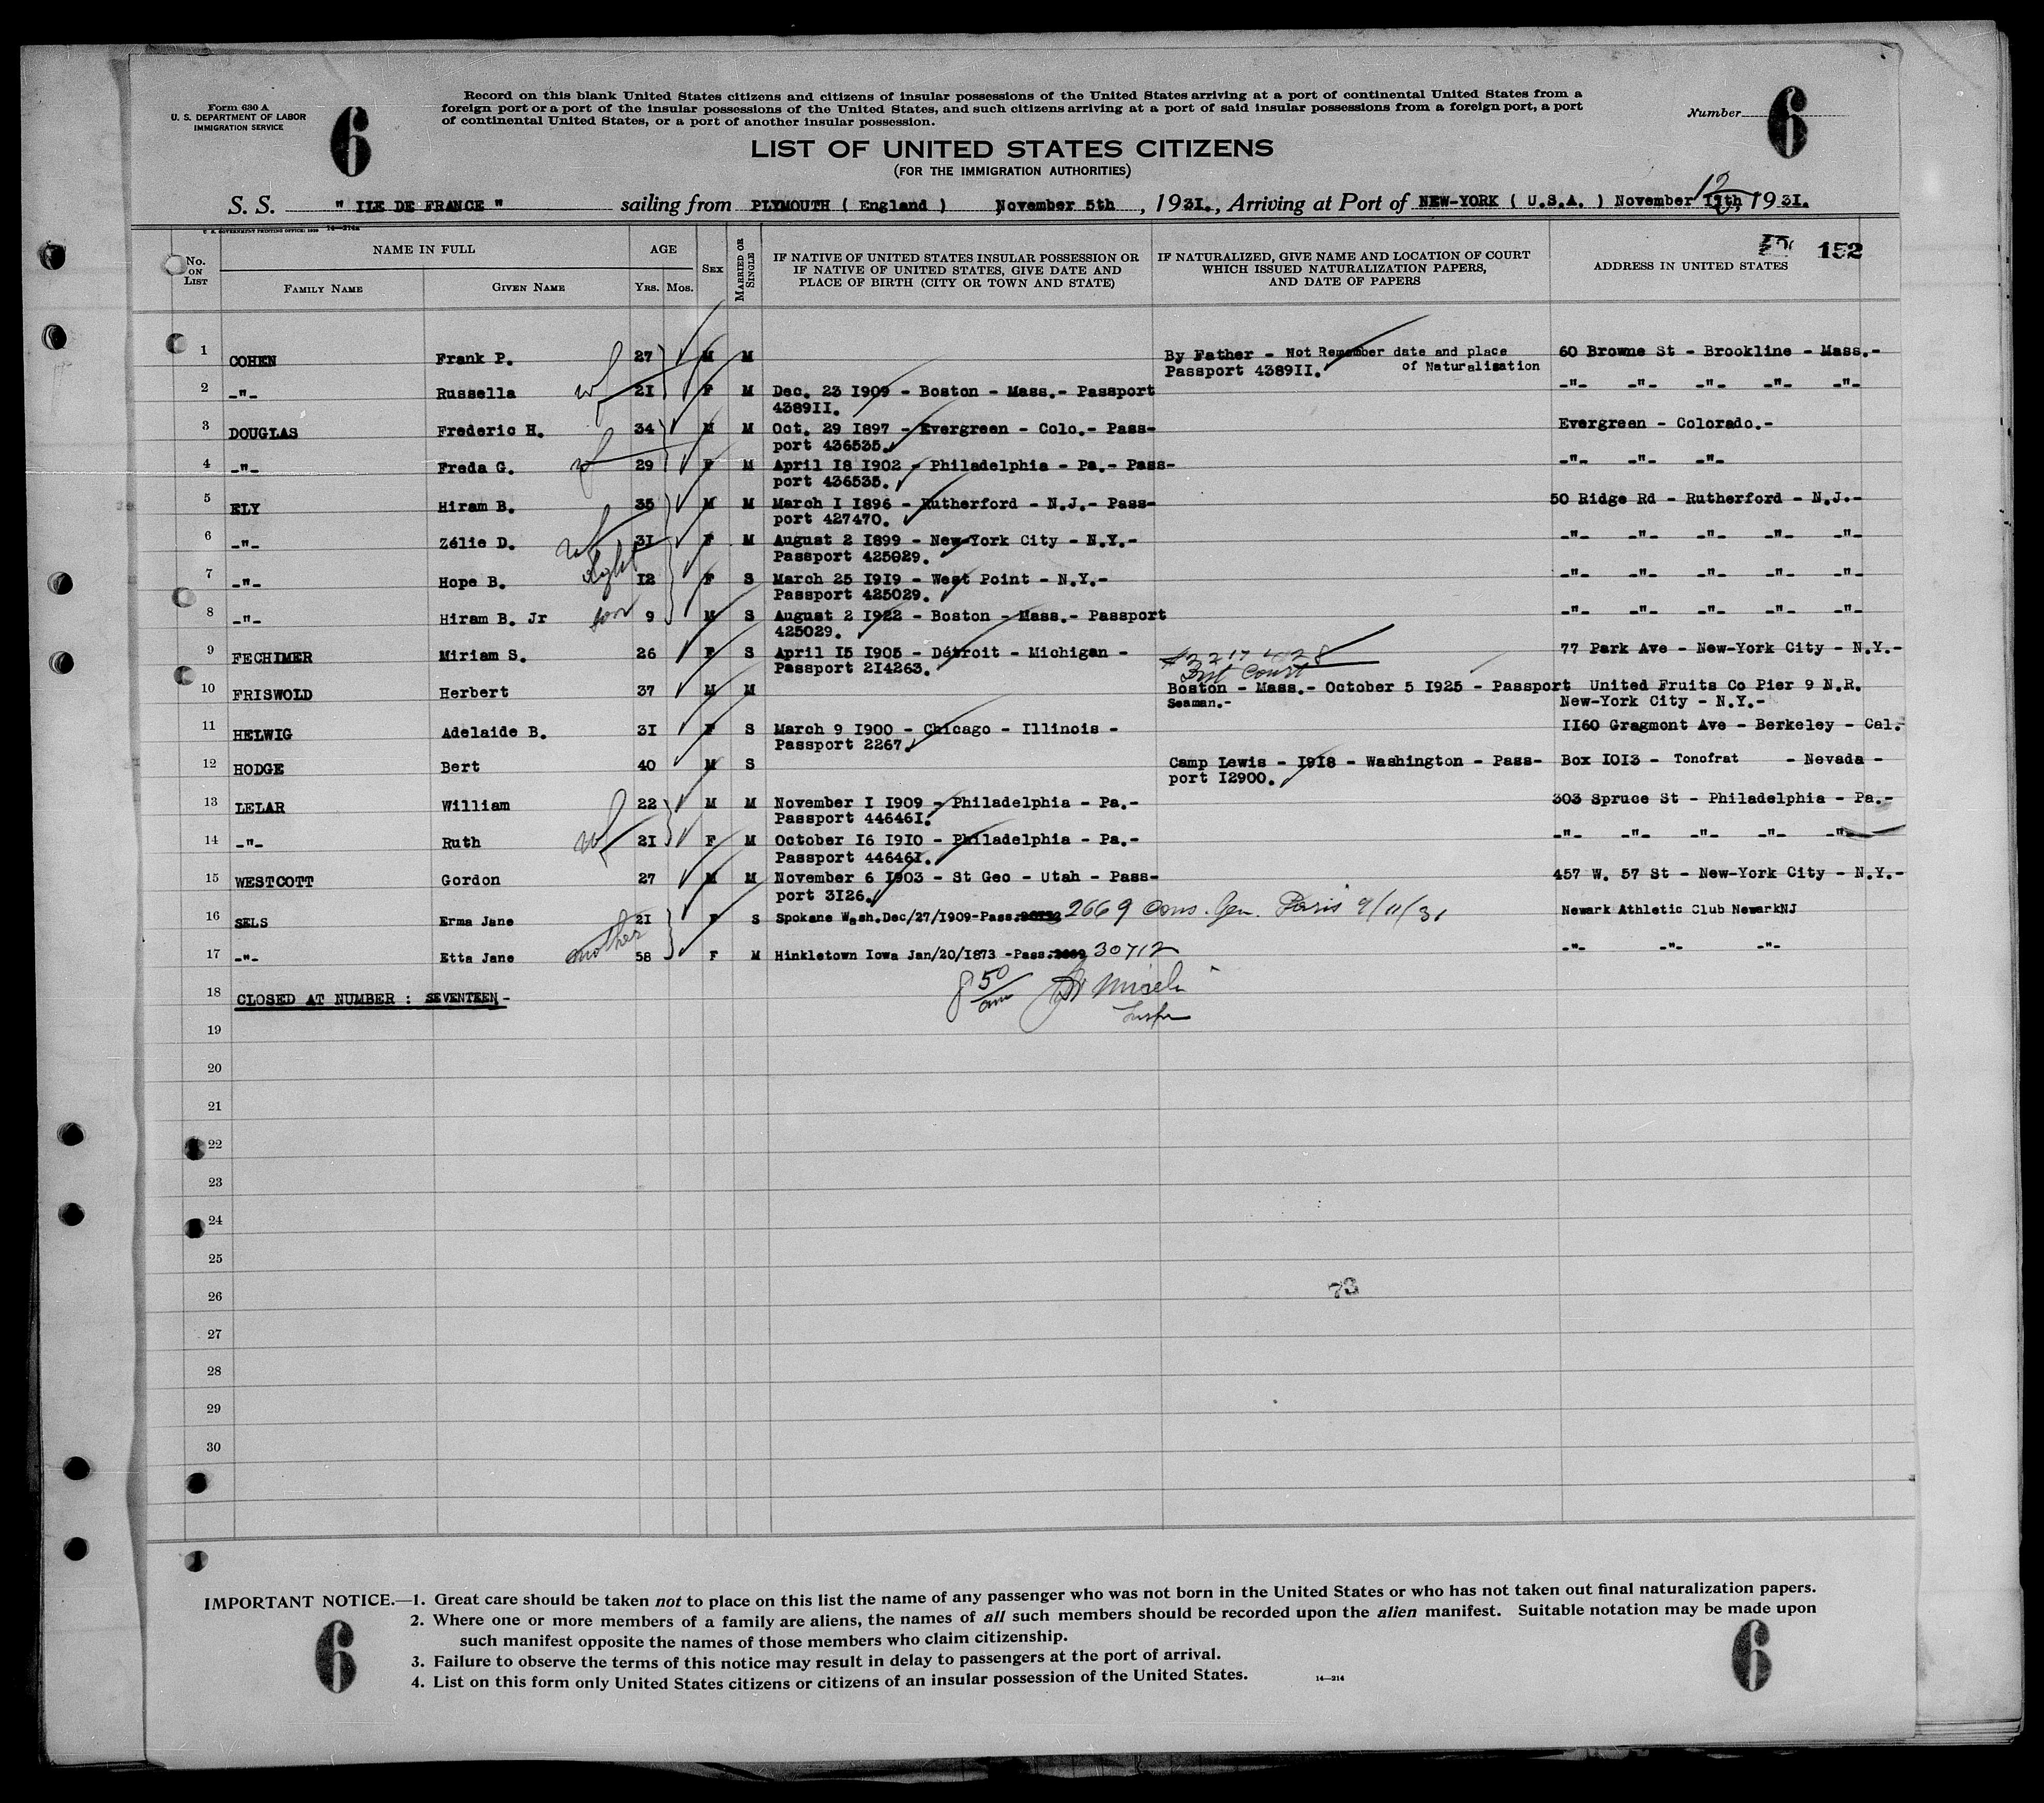 Form 630 A
U. S. DEPARTMENT OF LABOR
IMMIGRATION SERVICE
6
Record on this blank United States citizens and citizens of insular possessions of the United States arriving at a port of continental United States from a
foreign port or a port of the insular possessions of the United States, and such citizens arriving at a port of said insular possessions from a foreign port, a port
of continental United States, or a port of another insular possession.
Number
6
LIST OF UNITED STATES CITIZENS
(FOR THE IMMIGRATION AUTHORITIES)
S. S. " ILE DE FRANCE " sailing from PLYMOUTH ( England ) November 5th , 1931. , Arriving at Port of NEW-YORK ( U.S.A. ) November 11th 12, 1931.
U. S. GOVERNMENT PRINTING OFFICE: 1930 14—214a
152
No. ON LIST
NAME IN FULL
FAMILY NAME
GIVEN NAME
AGE
YRS. MOS.
SEX
MARRIED OR SINGLE
IF NATIVE OF UNITED STATES INSULAR POSSESSION OR
IF NATIVE OF UNITED STATES, GIVE DATE AND
PLACE OF BIRTH (CITY OR TOWN AND STATE)
IF NATURALIZED, GIVE NAME AND LOCATION OF COURT
WHICH ISSUED NATURALIZATION PAPERS,
AND DATE OF PAPERS
ADDRESS IN UNITED STATES
1 COHEN Frank P. 27 M M By Father - Not Remember date and place 60 Browne St - Brookline - Mass.-
Passport 4389II. of Naturalisation
2 -"- Russella wf 2I F M Dec. 23 I909 - Boston - Mass.- Passport -"- -"- -"- -"- -"-
4389II.
3 DOUGLAS Frederic H. 34 M M Oct. 29 I897 - Evergreen - Colo.- Pass- Evergreen - Colorado.-
port 436535.
4 -"- Freda G. wf 29 F M April I8 I902 - Philadelphia - Pa.- Pass- -"- -"- -"-
port 436535.
5 ELY Hiram B. 35 M M March I I896 - Rutherford - N.J.- Pass- 50 Ridge Rd - Rutherford - N.J.-
port 427470.
6 -"- Zélie D. wf 3I F M August 2 I899 - New-York City - N.Y.- -"- -"- -"- -"- -"-
Passport 425029.
7 -"- Hope B. dght I2 F S March 25 I9I9 - West Point - N.Y.- -"- -"- -"- -"- -"-
Passport 425029.
8 -"- Hiram B. Jr son 9 M S August 2 I922 - Boston - Mass.- Passport -"- -"- -"- -"- -"-
425029.
9 FECHIMER Miriam S. 26 F S April I5 I905 - Détroit - Michigan - 77 Park Ave - New-York City - N.Y.-
Passport 2I4263.
#2217428
Dist Court
10 FRISWOLD Herbert 37 M M Boston - Mass.- October 5 I925 - Passport United Fruits Co Pier 9 N.R.
Seaman.- New-York City - N.Y.-
11 HELWIG Adelaide B. 3I F S March 9 I900 - Chicago - Illinois - II60 Gragmont Ave - Berkeley - Cal.-
Passport 2267.
12 HODGE Bert 40 M S Camp Lewis - I9I8 - Washington - Pass- Box I0I3 - Tonofrat - Nevada -
port I2900.
13 LELAR William 22 M M November I I909 - Philadelphia - Pa.- 303 Spruce St - Philadelphia - Pa.-
Passport 44646I.
14 -"- Ruth wf 2I F M October I6 I9I0 - Philadelphia - Pa.- -"- -"- -"- -"- -"-
Passport 44646I.
15 WESTCOTT Gordon 27 M M November 6 I903 - St Geo - Utah - Pass- 457 W. 57 St - New-York City - N.Y.-
port 3I26.
16 SELS Erma Jane 2I F S Spokane Wash.Dec/27/I909-Pass. 2669 Cons. Gen. Paris 9/11/31 Newark Athletic Club NewarkNJ
17 -"- Etta Jane mother 58 F M Hinkletown Iowa Jan/20/I873 -Pass.2669 30712 -"- -"- -"-
18 CLOSED AT NUMBER : SEVENTEEN-
8 50 am
Inspr
19
20
21
22
23
24
25
26
73
27
28
29
30
IMPORTANT NOTICE.—1. Great care should be taken not to place on this list the name of any passenger who was not born in the United States or who has not taken out final naturalization papers.
2. Where one or more members of a family are aliens, the names of all such members should be recorded upon the alien manifest. Suitable notation may be made upon
such manifest opposite the names of those members who claim citizenship.
3. Failure to observe the terms of this notice may result in delay to passengers at the port of arrival.
4. List on this form only United States citizens or citizens of an insular possession of the United States.
14—214
6
6